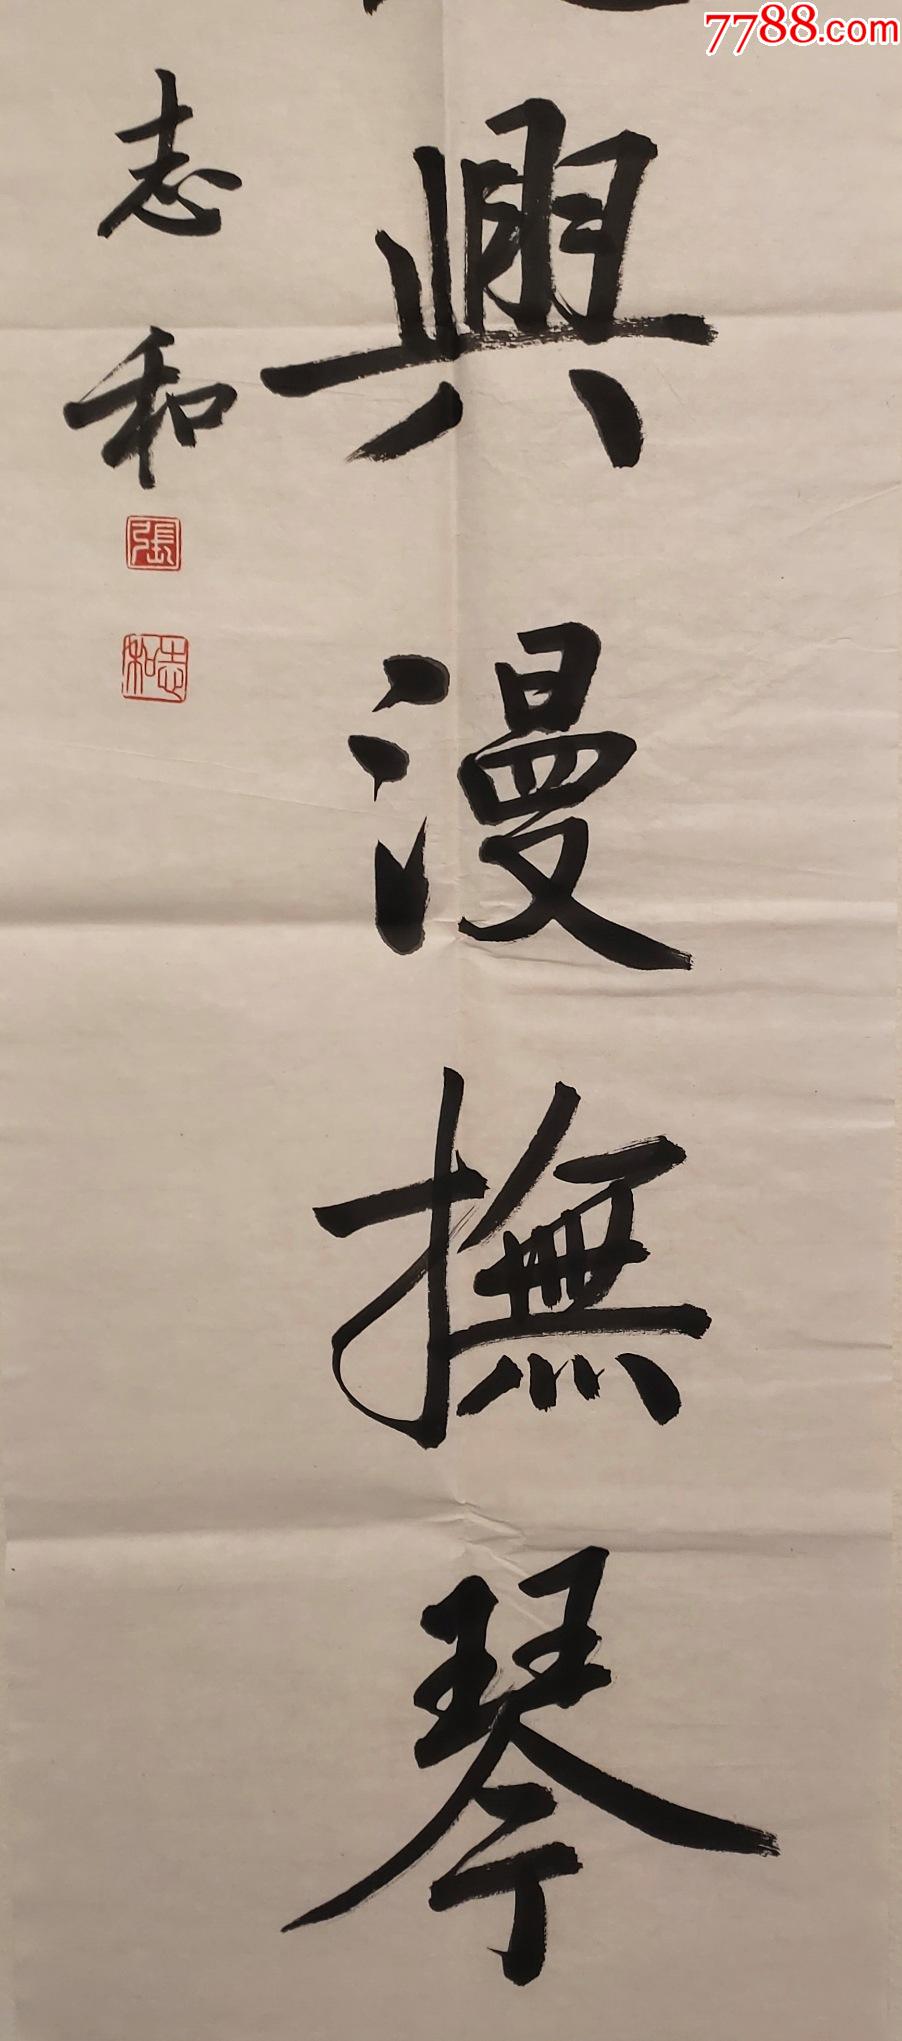 7788.com
興漫撫琴
志和
張
志和